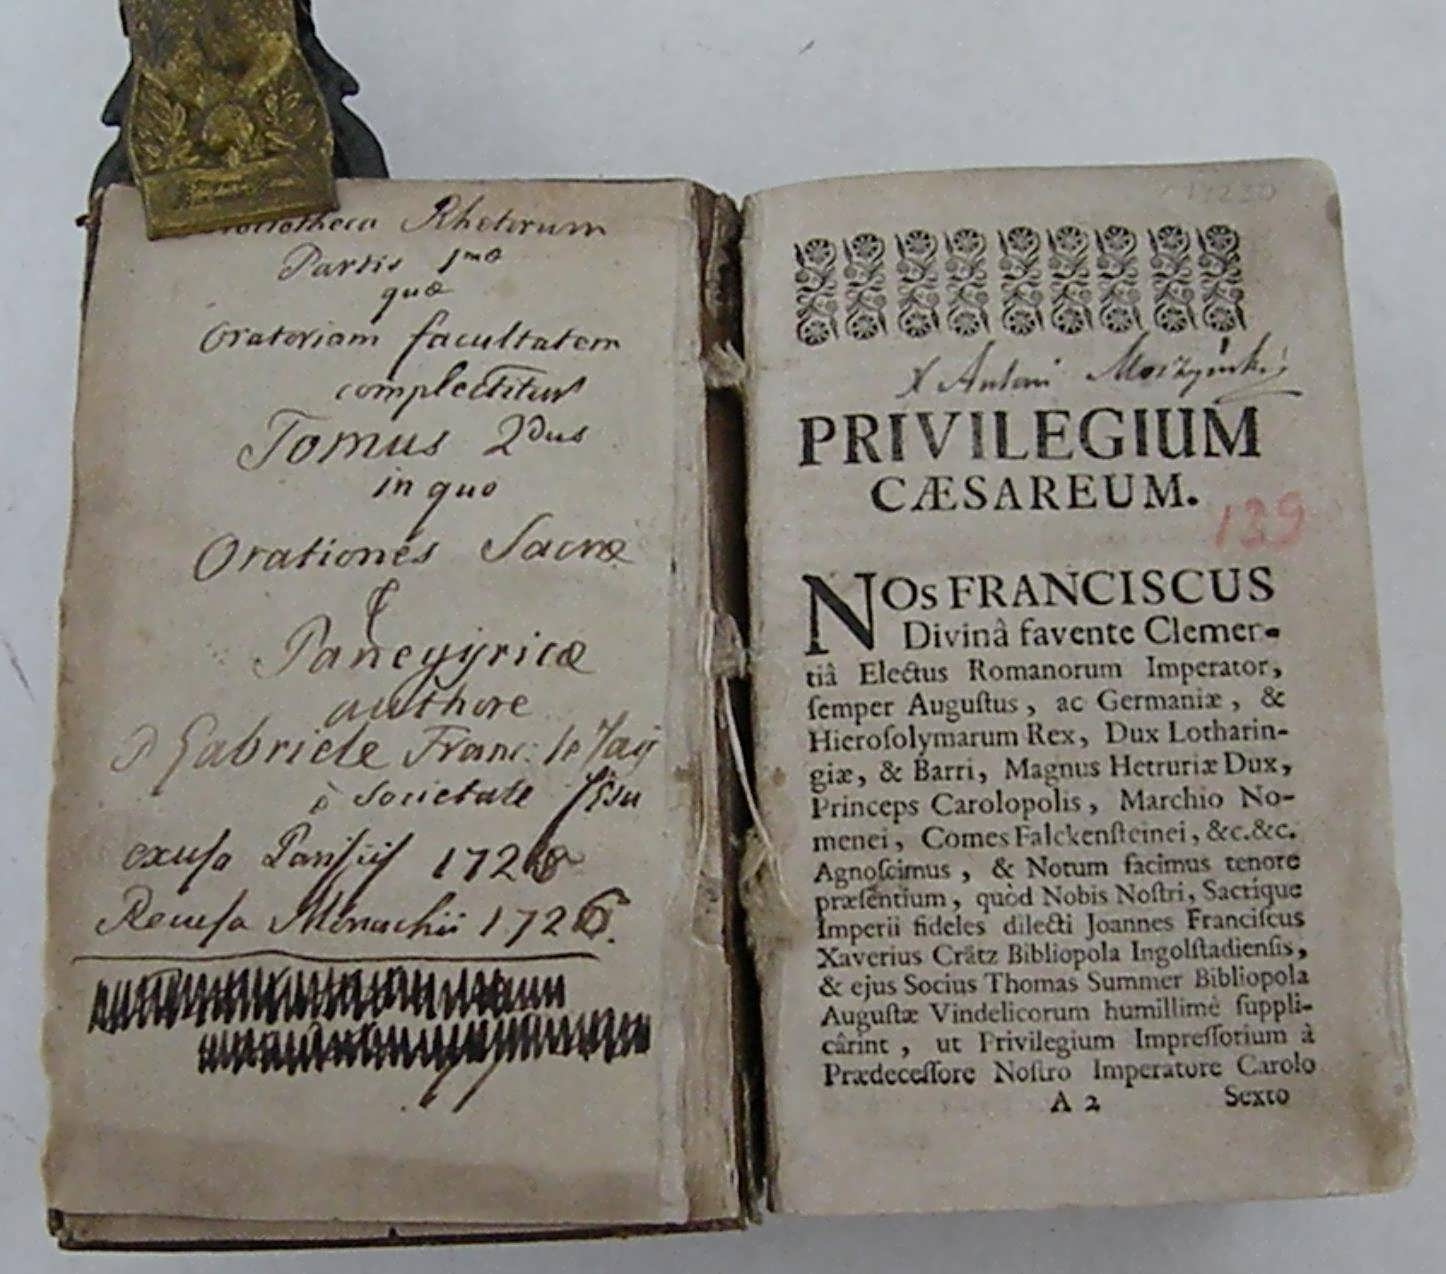 Rhetorum
Partis 1mæ
quæ
Oratoriam facultatem
complectitur
Tomus 2dus
in quo
Orationes Sacræ
&
Panegyricæ
authore
P Gabriele Franc: le Jay
è Societate Jesu
excusa Parisiis 172
Recusa Monachii 1726.
X Antoni Moszyński
PRIVILEGIUM
CÆSAREUM.
139
NOs FRANCISCUS
Divinâ favente Clemen-
tiâ Electus Romanorum Imperator,
ſemper Auguſtus, ac Germaniæ, &
Hieroſolymarum Rex, Dux Lotharin-
giæ, & Barri, Magnus Hetruriæ Dux,
Princeps Carolopolis, Marchio No-
menei, Comes Falckenſteinei, &c.&c.
Agnoſcimus, & Notum facimus tenore
præſentium, quòd Nobis Noſtri, Sacrique
Imperii fideles dilecti Joannes Franciſcus
Xaverius Crätz Bibliopola Ingolſtadienſis,
& ejus Socius Thomas Summer Bibliopola
Auguſtæ Vindelicorum humillimè ſuppli-
cârint, ut Privilegium Impreſſorium à
Prædeceſſore Noſtro Imperatore Carolo
A 2 Sexto